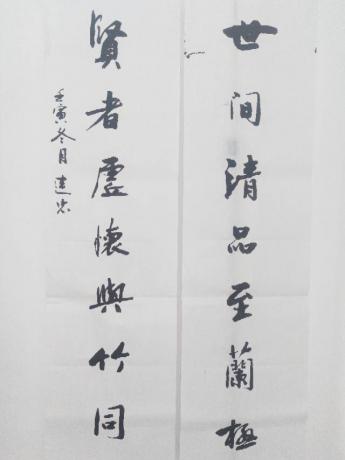 世间清品至蘭極
賢者虛懷與竹同
壬寅冬月建忠